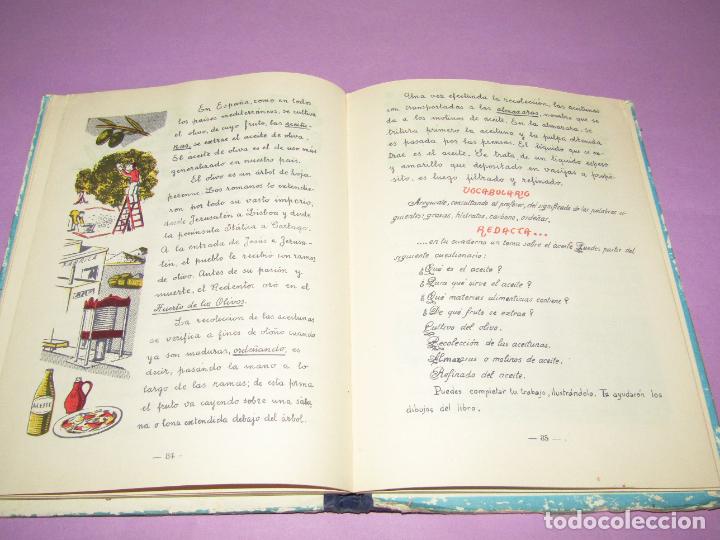 En España, como en todos
los países mediterráneos, se cultiva
el olivo, de cuyo fruto, las aceitu-
nas, se extrae el aceite de oliva.
El aceite de oliva es el de uso más
generalizado en nuestro país.
El olivo es un árbol de hoja
perenne. Los romanos lo extendie-
ron por todo su vasto imperio,
desde Jerusalén a Lisboa y desde
la península Itálica a Cartago.
A la entrada de Jesús e Jerusa-
lén, el pueblo le recibió con ramos
de olivo. Antes de su pasión y
muerte, el Redentor oró en el
Huerto de los Olivos.
La recolección de las aceitunas
se verifica a fines de otoño cuando
ya son maduras, ordeñando, es
decir, pasando la mano a lo
largo de las ramas; de esta forma
el fruto va cayendo sobre una sába-
na o lona extendida debajo del árbol.
— 84 —
RICA
ACEITE
Una vez efectuada la recolección, las aceitunas
son transportadas a las almazaras, nombre que se
da a los molinos de aceite. En la almazara, se
tritura primero la aceituna y la pulpa obtenida
es pasada por las prensas. El líquido que se ex-
trae es el aceite. Se trata de un líquido espeso
y amarillo que depositado en vasijas a propó-
sito, es luego filtrado y refinado.
VOCABULARIO
Averiguate, consultando al profesor, del significado de las palabras si-
guientes: grasas, hidratos, carbono, ordeñar.
REDACTA...
....en tu cuaderno un tema sobre el aceite. Puedes partir del
siguiente cuestionario:
¿Qué es el aceite?
¿Para qué sirve el aceite?
¿Qué materias alimenticias contiene?
¿De qué fruto se extrae?
Cultivo del olivo.
Recolección de las aceitunas.
Almazaras o molinos de aceite.
Refinado del aceite.
Puedes completar tu trabajo, ilustrándolo. Te ayudarán los
dibujos del libro.
— 85 —
todocoleccion.net